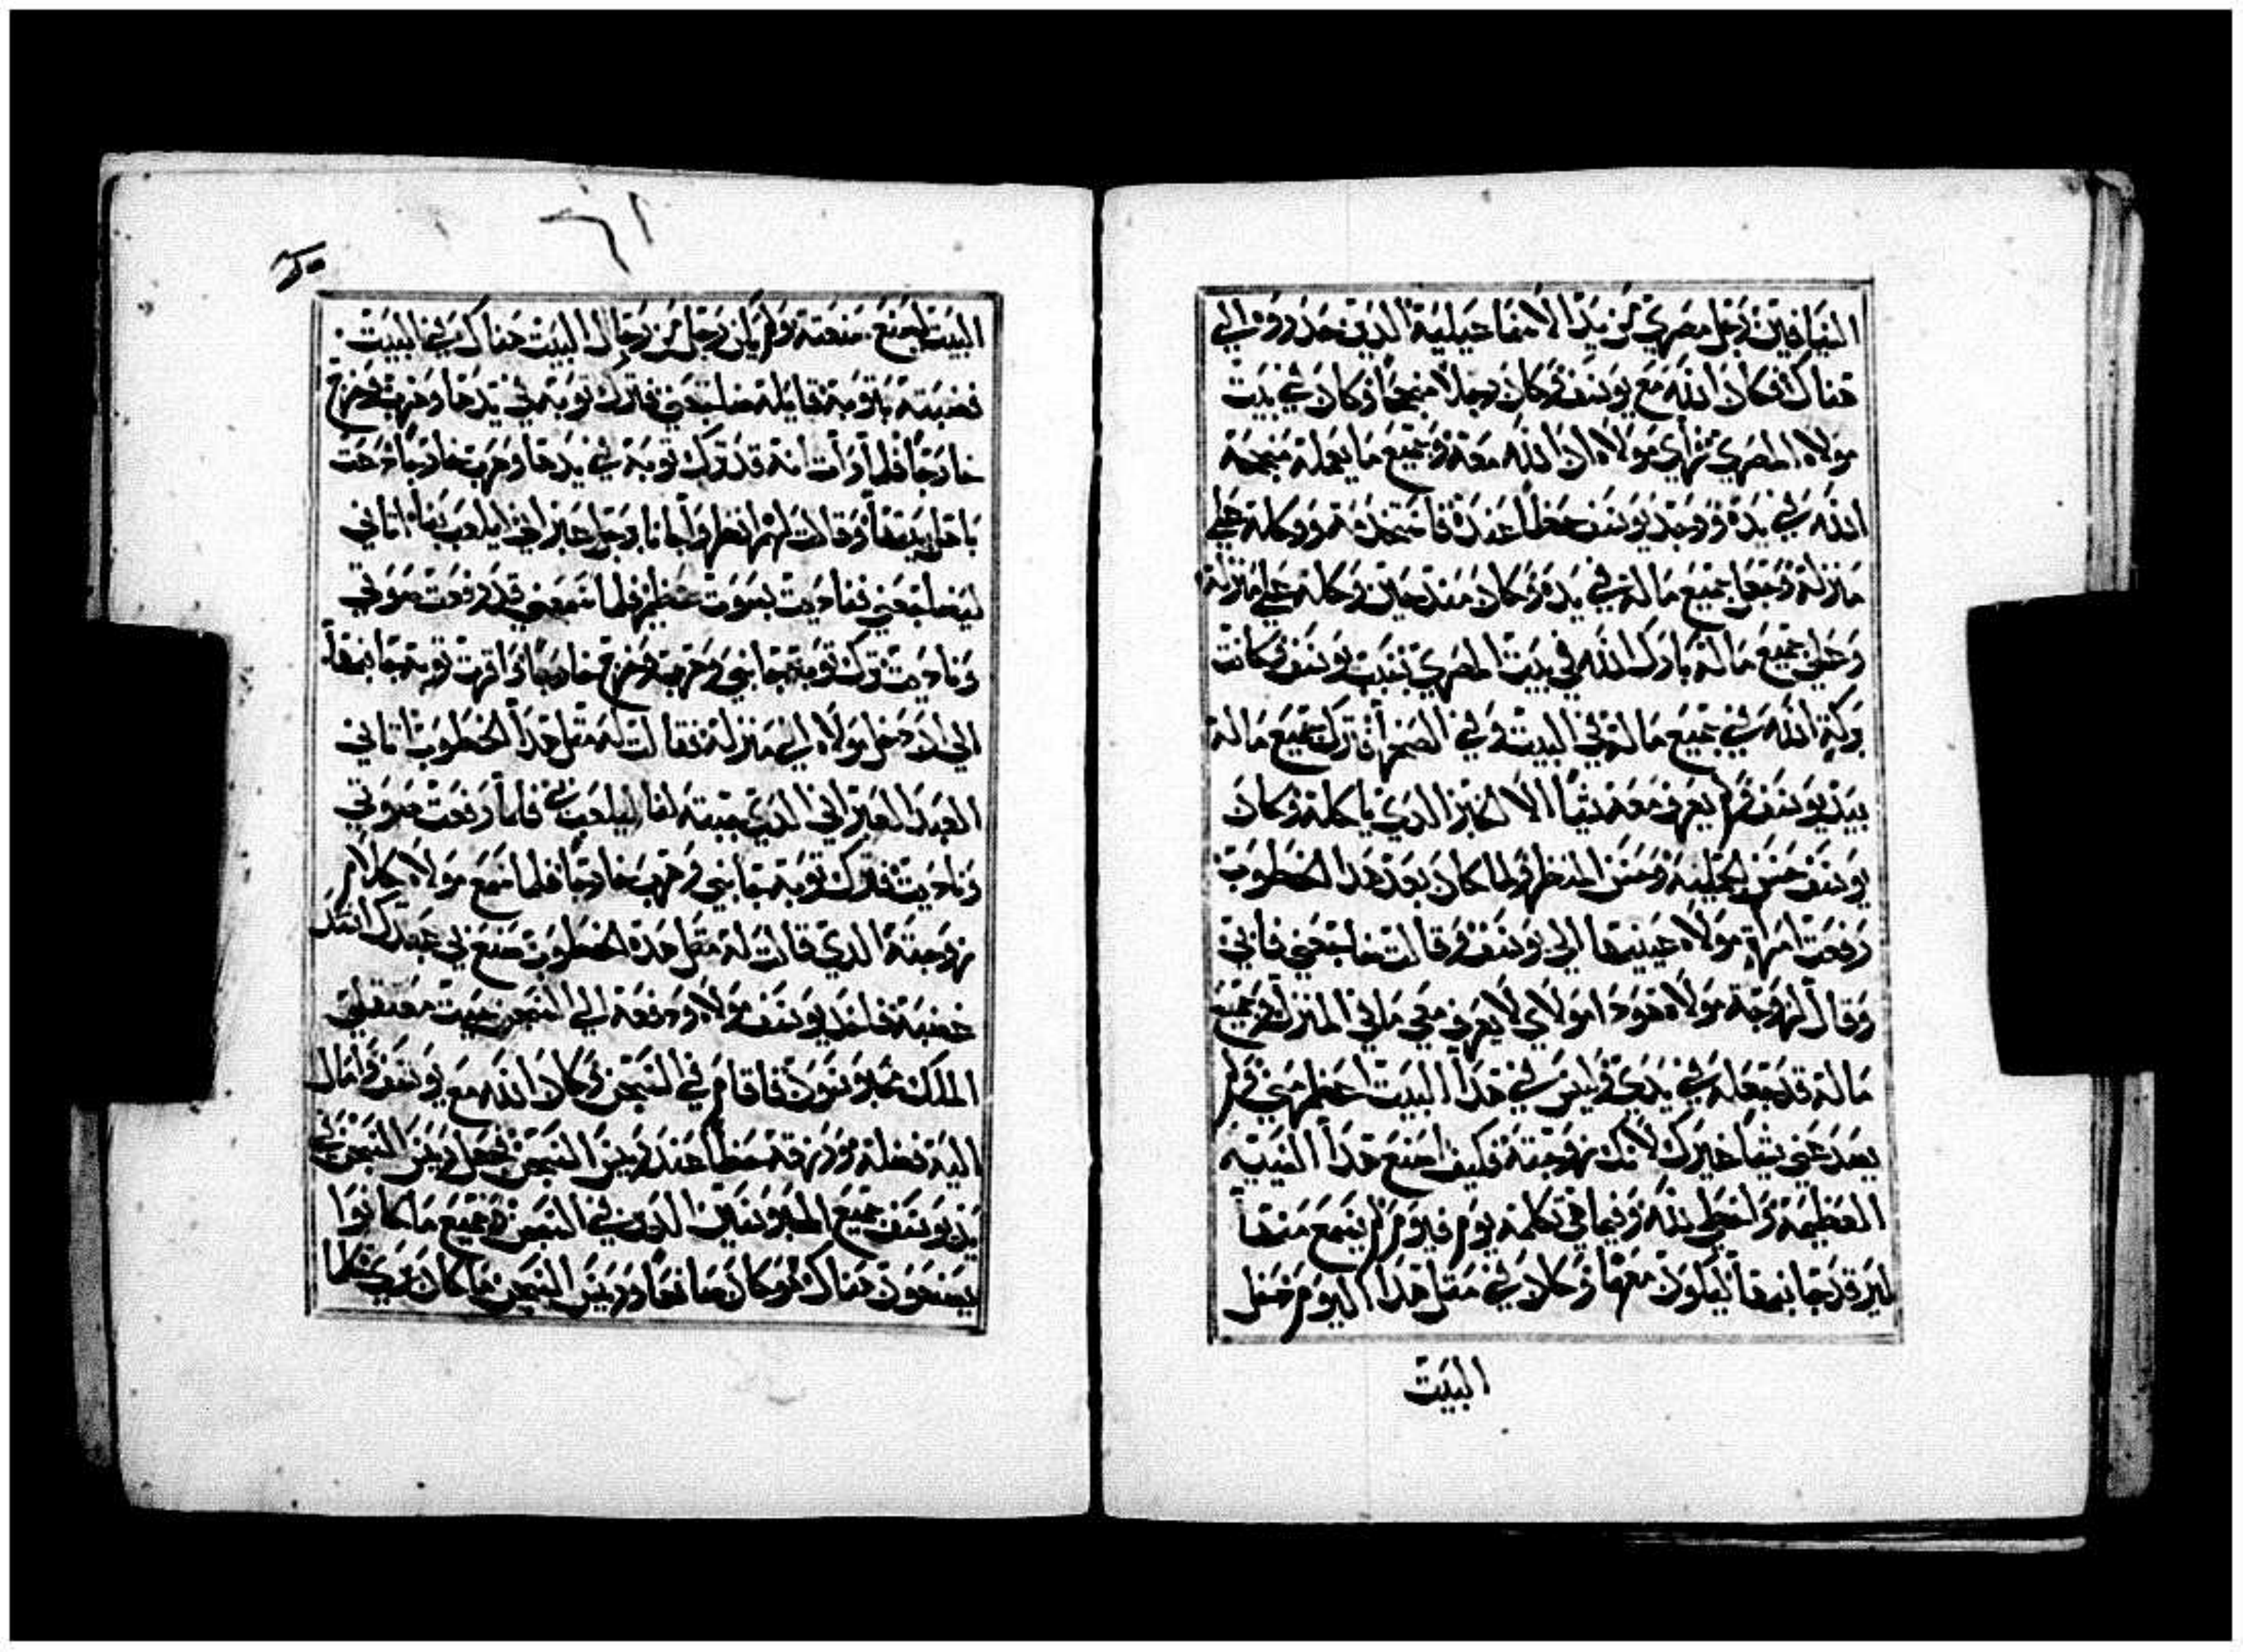 السيافين رجل مصري من يد الاسماعيلية الذين حدروه الي
هناك فكان الله مع يوسف وكان رجلا منجحا وكان في بيت
مولاه المصري فراي مولاه ان الله معه وجميع ما يعمله منجحه
الله في يده ووجد يوسف حظا عنده فاستخدمه ووكله علي
منزله وجعل جميع ماله في يده وكان منذ حين وكله علي منزله
وعلي جميع ماله بارك الله في بيت المصري بسبب يوسف وكانت
بركة الله في جميع ماله في البيت وفي الصحرا فترك جميع ماله
بيد يوسف ولم يعرف معه شيا الا الخبز الذي ياكله وكان
يوسف حسن الحلية وحسن المنظر ولما كان بعد هذا الخطوب
رفعت امراة مولاه عينيها الي يوسف وقالت ضاجعني فابي
وقال لزوجة مولاه هوذا مولاي لا يعرف معي ما في المنزل وجميع
ماله قد جعله في يدي وليس في هذا البيت اعظم مني ولم
يصد عني شيا غيرك لانك زوجته فكيف اصنع هذا السية
العظيمة واخطي لله وفيما هي تكلمه يوم فيوم لم يسمع منها
ليرقد جانبها ليكون معها وكان في مثل هذا اليوم دخل
البيت
البيت ليصنع صنعته ولم يكن رجل من رجال البيت هناك في البيت
فضبته بثوبه قايلة ضاجعني فترك ثوبه في يدها وهرب وخرج
خارجا فلما رات انه قد ترك ثوبه في يدها وهرب خارجا دعت
باهل بيتها وقالت لهم انظروا جانا برجل عبراني ليلعب بنا اتاني
ليضاجعني فناديت بصوت عظيم فلما سمعني قد رفعت صوتي
وناديت ترك ثوبه جانبي وهرب وخرج خارجا واقرت ثوبه جانبها
الي ان دخل مولاه الي منزله فقالت له مثل هذا الخطوب اتاني
العبد العبراني الذي جيته لنا ليلعب بي فلما رفعت صوتي
وناديت فترك ثوبه جانبي وهرب خارجا فلما سمع مولاه كلام
زوجته الذي قالت له مثل هذه الخطوب صنع بي عبدك اشتد
غضبه فاخذ يوسف مولاه ودفعه الي السجن بيت معتقلي
الملك محبوسون فاقام في السجن وكان الله مع يوسف وامال
اليه فضله ورزقه حظا عند رييس السجن فجعل رييس السجن في
يد يوسف جميع المحبوسين الذين في السجن وجميع ما كانوا
يصنعون هناك هو كان صانعا ورييس السجن ما كان يري شيا